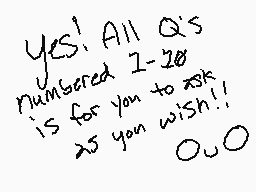 Yes! All Q's
numbered 1-20
is for you to ask
as you wish!!
OuO